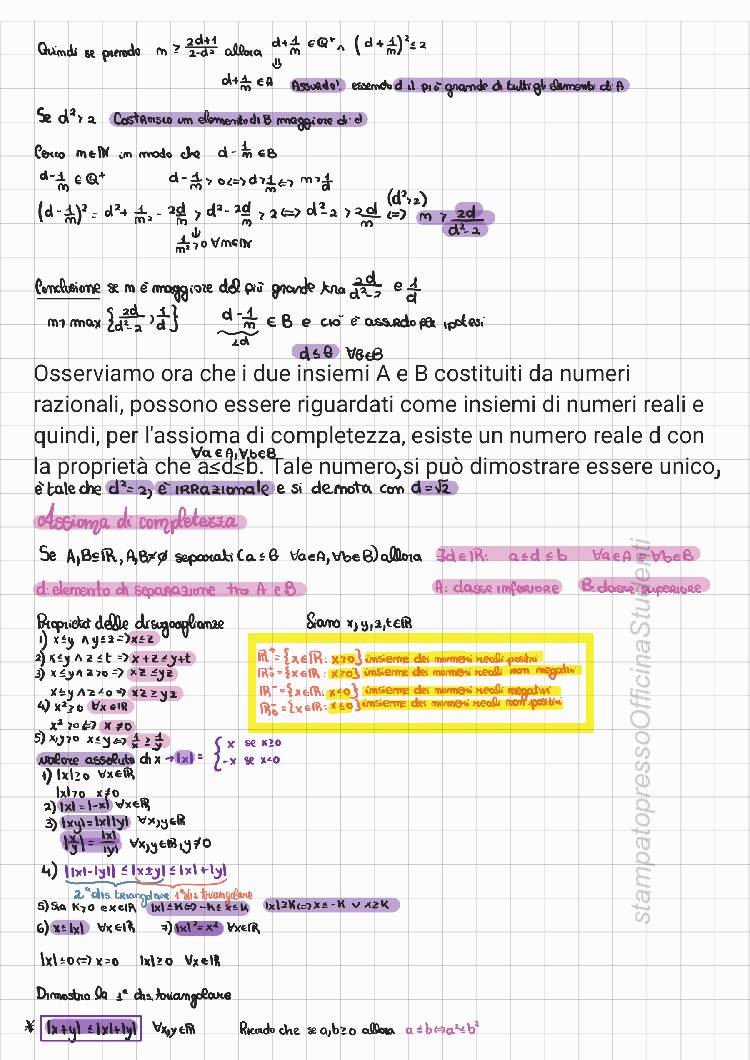 Quindi se prendo m ≥ 2d+1/2-d² allora d+1/m ∈ Q⁺ ∧ (d+1/m)² ≤ 2
⇓
d+1/m ∈ A Assurdo! essendo d il più grande di tutti gli elementi di A
Se d²>2 Costruisco un elemento di B maggiore di d
Cerco m∈N in modo che d-1/m ∈ B
d-1/m ∈ Q⁺ d-1/m > 0 <=> d>1/m <=> m>1/d
(d-1/m)² = d²+1/m² - 2d/m > d²-2d/m > 2 <=> d²-2 > 2d/m (d²>2) <=> m > 2d/d²-2
⇓
1/m²>0 ∀m∈N
Conclusione se m è maggiore del più grande tra 2d/d²-2 e 1/d
m> max {2d/d²-2, 1/d} d-1/m ∈ B e ciò è assurdo per ipotesi
≥d
d≤B ∀B∈B
Osserviamo ora che i due insiemi A e B costituiti da numeri
razionali, possono essere riguardati come insiemi di numeri reali e
quindi, per l'assioma di completezza, esiste un numero reale d con
∀a∈A, ∀b∈B
la proprietà che a≤d≤b. Tale numero, si può dimostrare essere unico,
è tale che d²=2, è IRRAZIONALE e si denota con d=√2
Assioma di completezza
Se A,B⊆R, A,B≠∅ separati (a≤B ∀a∈A, ∀b∈B) allora ∃d∈R: a≤d≤b ∀a∈A e ∀b∈B
d: elemento di separazione tra A e B A: classe inferiore B: classe superiore
Proprietà delle disuguaglianze Siano x,y,z,t∈R
1) x≤y ∧ y≤z => x≤z
2) x≤y ∧ z≤t => x+z≤y+t
3) x≤y ∧ z>0 => xz≤yz
x≤y ∧ z<0 => xz≥yz
4) x²≥0 ∀x∈R
x²>0 <=> x≠0
5) x,y>0 x≤y <=> 1/x ≥ 1/y
R⁺={x∈R: x>0} insieme dei numeri reali positivi
R₀⁺={x∈R: x≥0} insieme dei numeri reali non negativi
R⁻={x∈R: x<0} insieme dei numeri reali negativi
R₀⁻={x∈R: x≤0} insieme dei numeri reali non positivi
Valore assoluto di x → |x| = { x se x≥0
-x se x<0
1) |x|≥0 ∀x∈R
|x|>0 x≠0
2) |x|=|-x| ∀x∈R
3) |xy|=|x||y| ∀x,y∈R
|x/y|=|x|/|y| ∀x,y∈R, y≠0
4) ||x|-|y|| ≤ |x±y| ≤ |x|+|y|
2ª dis. triangolare 1ª dis. triangolare
5) Sia K>0 e x∈R |x|≤K <=> -K≤x≤K |x|≥K <=> x≤-K ∨ x≥K
6) x≤|x| ∀x∈R 7) |x|²=x² ∀x∈R
|x|=0 <=> x=0 |x|≥0 ∀x∈R
Dimostro la 1ª dis. triangolare
* |x+y| ≤ |x|+|y| ∀x,y∈R Ricordo che se a,b≥0 allora a≤b <=> a²≤b²
stampatopressoOfficinaStudenti